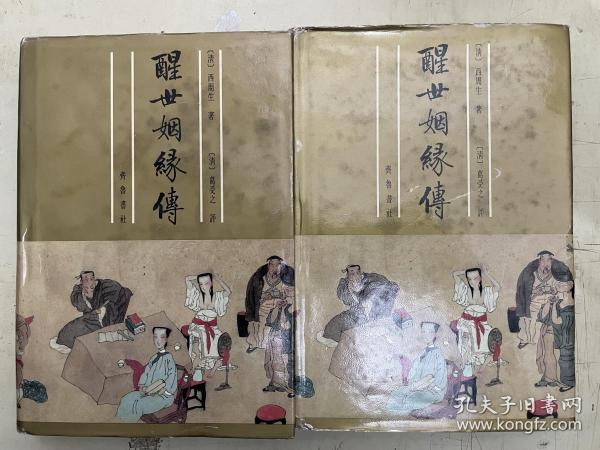 醒世姻緣傳
〔清〕西周生 著
〔清〕葛受之 評
齊魯書社
醒世姻緣傳
〔清〕西周生 著
〔清〕葛受之 評
齊魯書社
孔夫子旧书网
www.kongfz.com